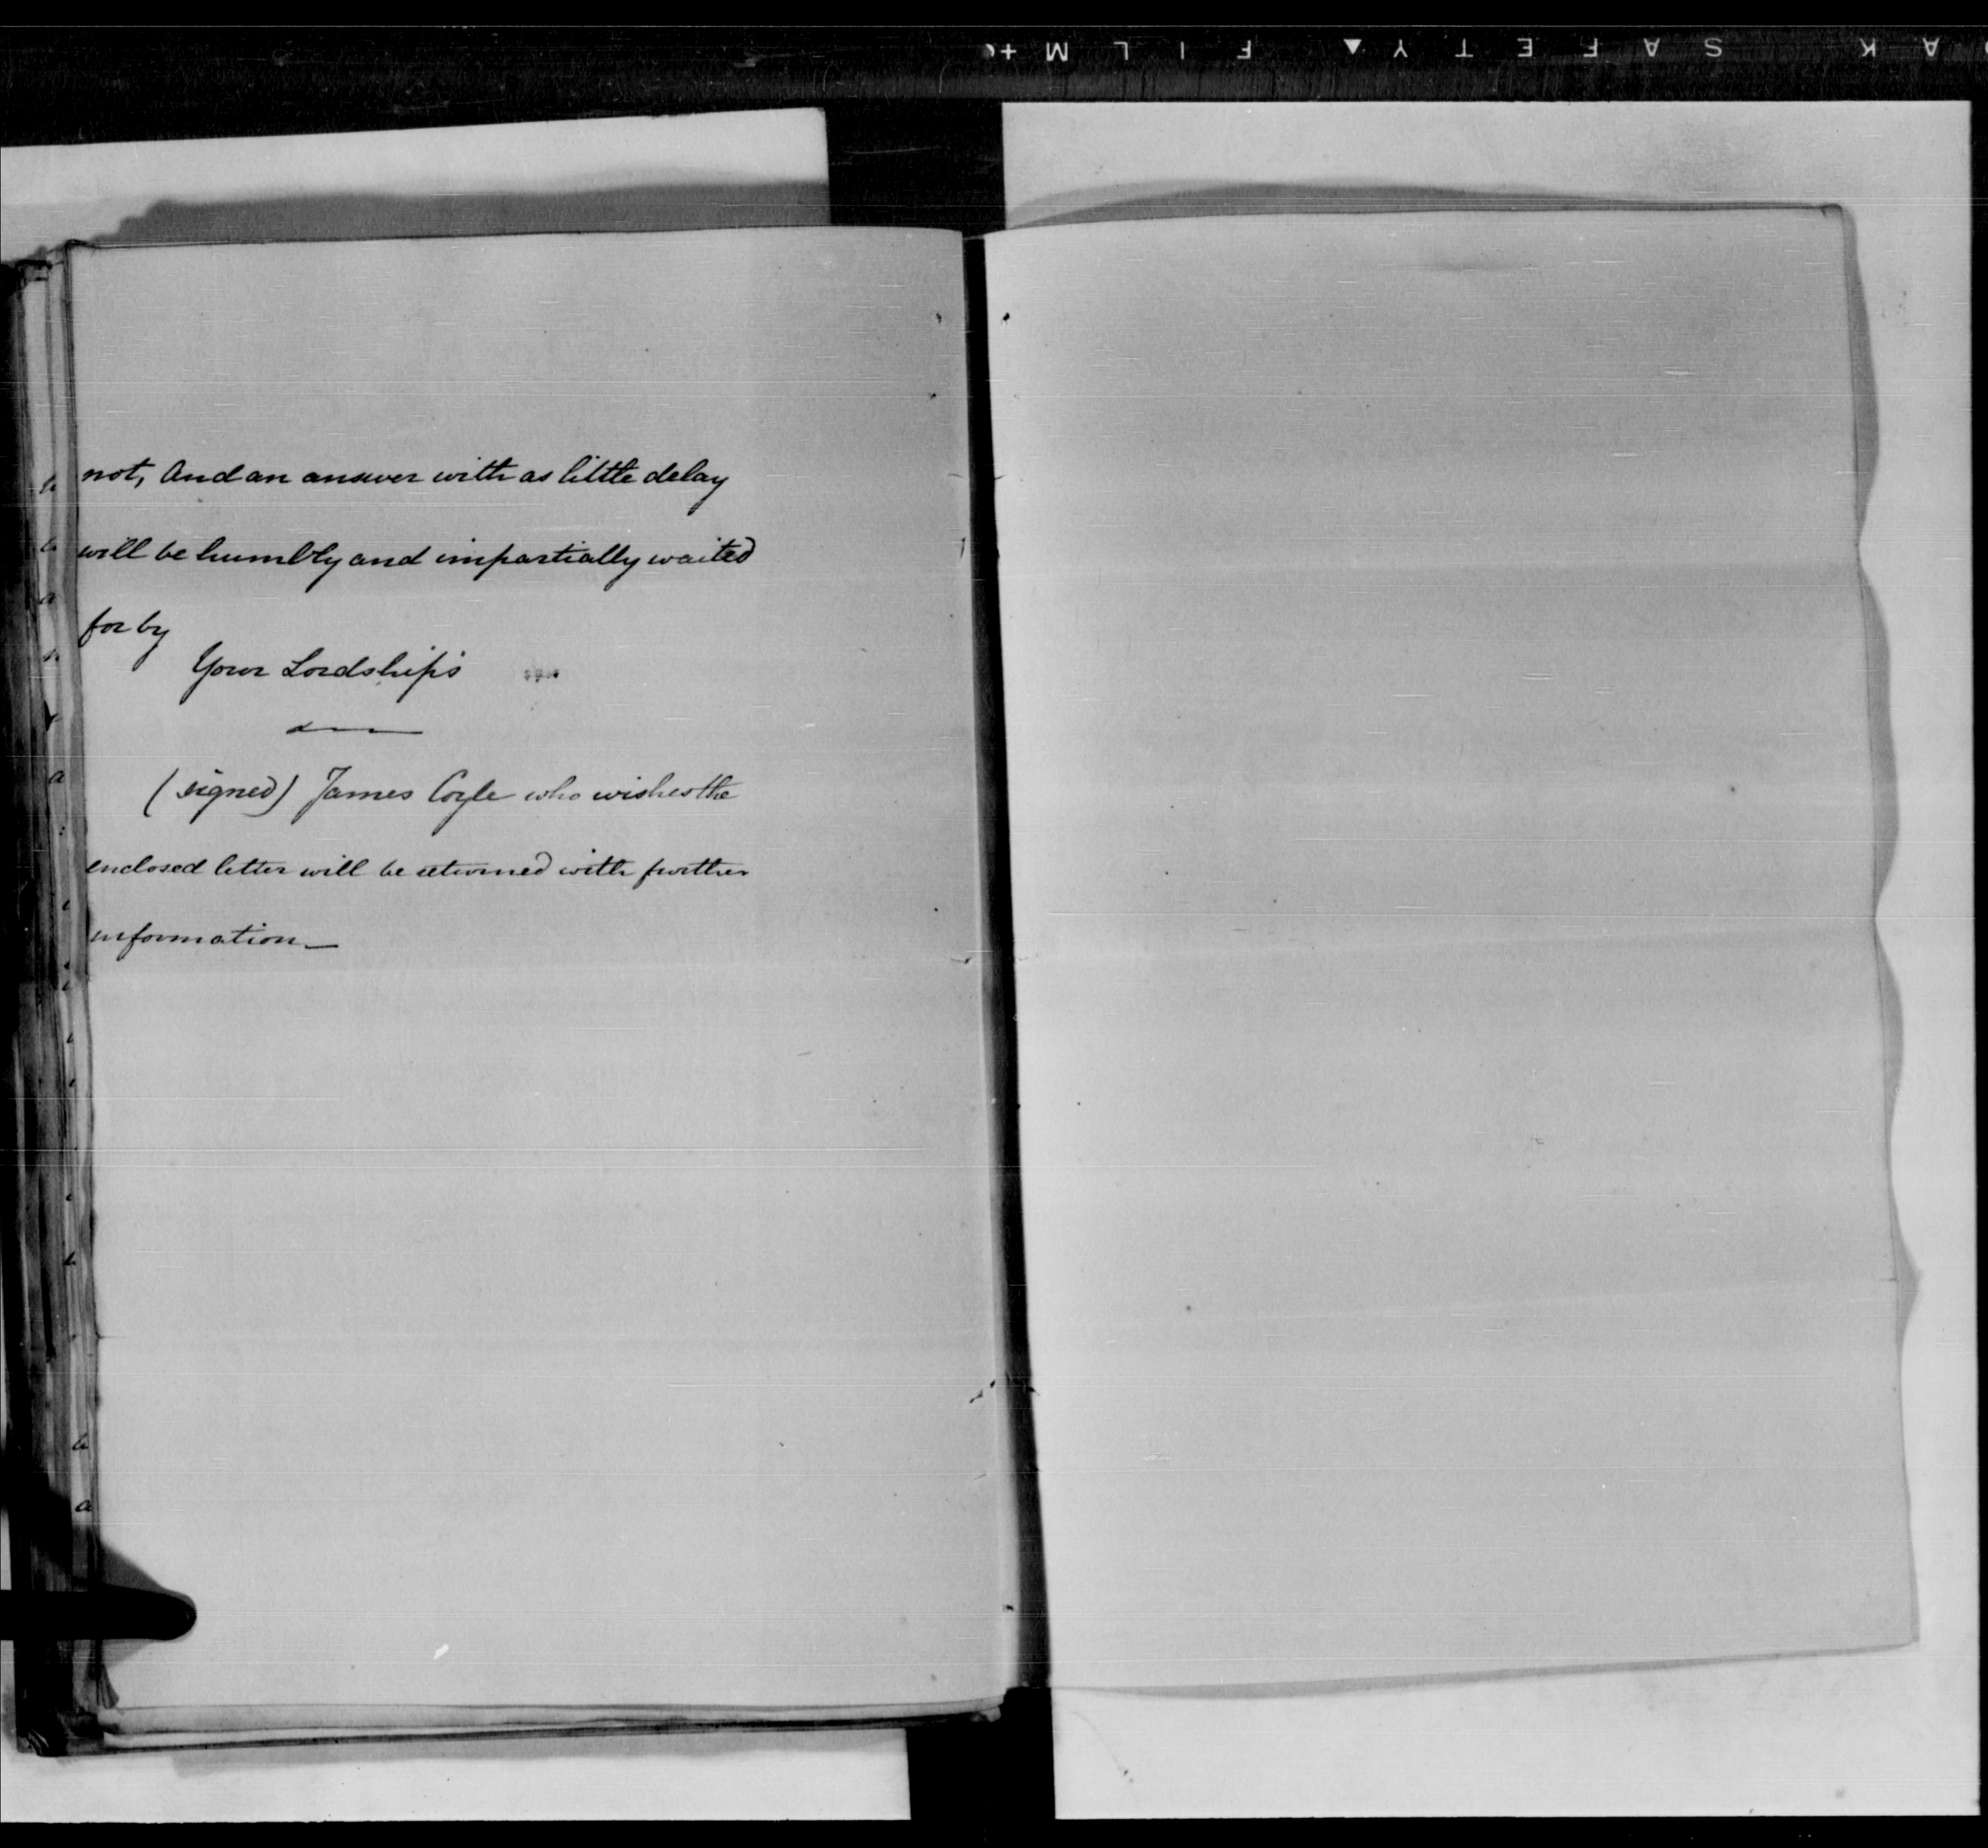 not, And an answer with as little delay
will be humbly and impartially waited
for by
Your Lordship's
(signed) James Coyle who wishes the
enclosed letter will be returned with further
information_